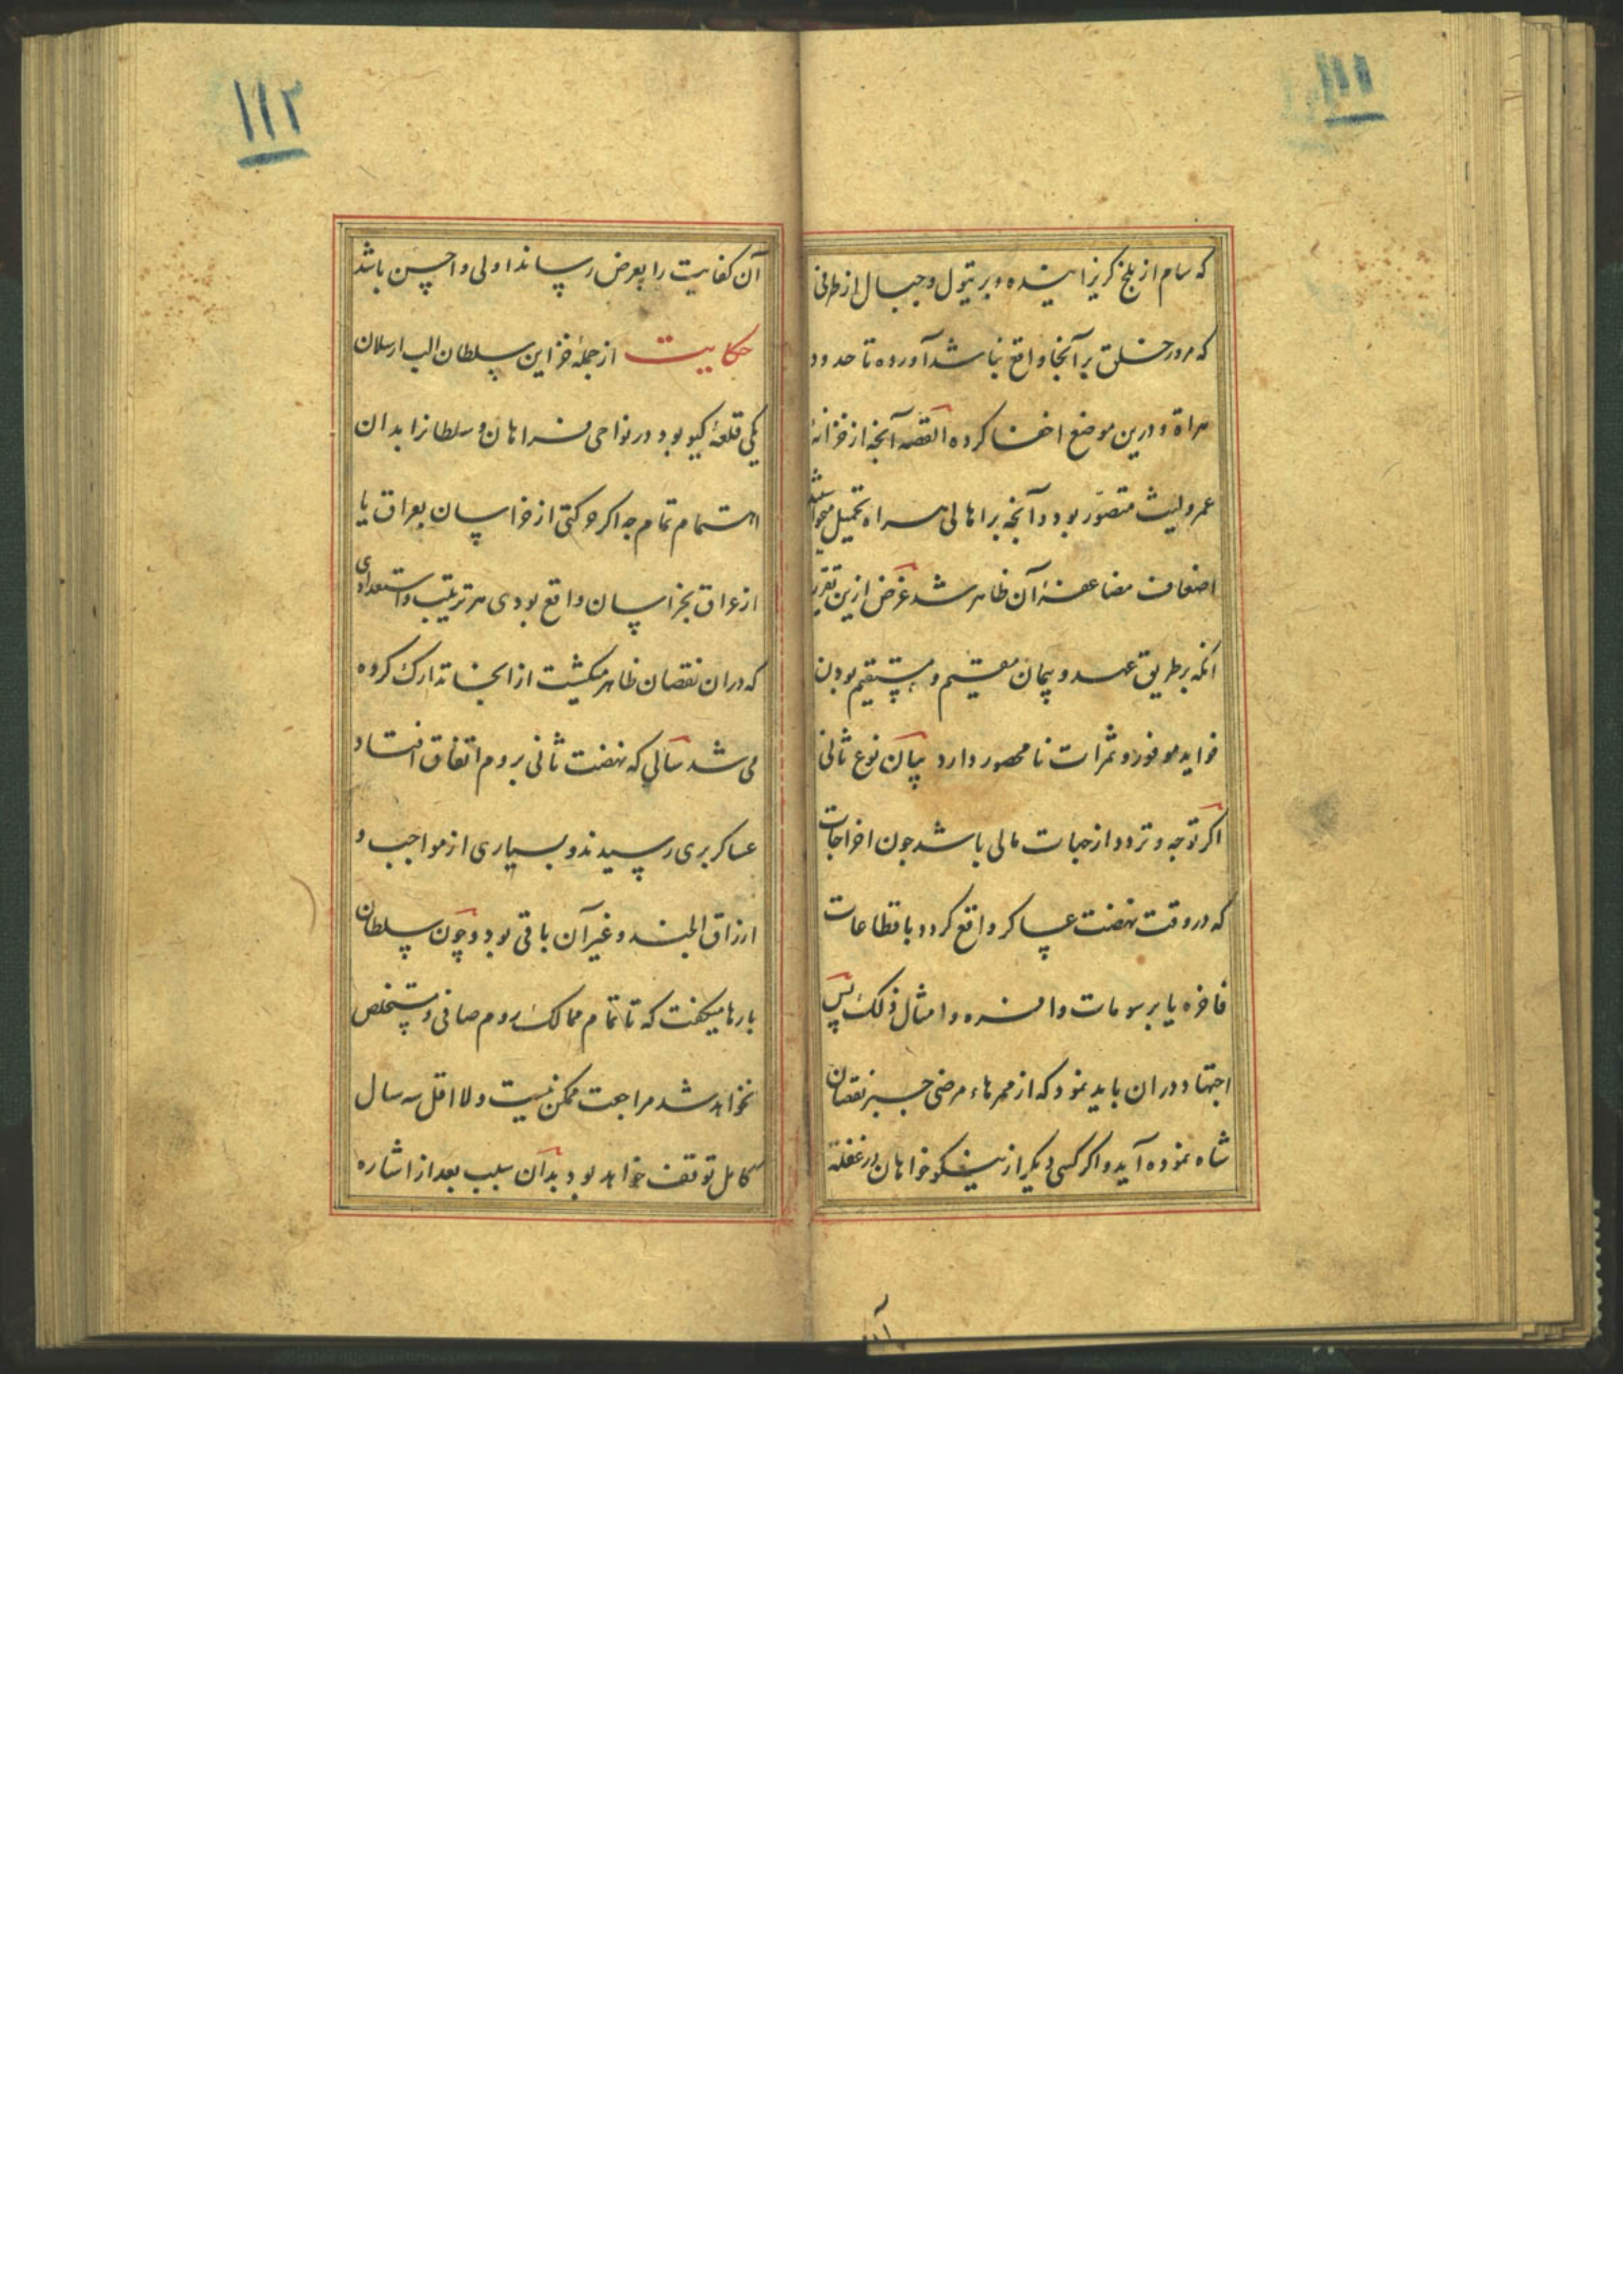 ۱۱۱
که سام از بلخ گریزانیده و بر تیول و جبال از طرفی
که مرور خلق بر آنجا واقع نباشد آورده تا حدود
هراة و درین موضع اخفا کرده القصه آنچه از خزانهٔ
عمرو لیث متصوّر بود و آنچه بر اهالی هراه تحمیل میخواستند
اضعاف مضاعفهٔ آن ظاهر شد غرض ازین تقریر
آنکه بر طریق عهد و پیمان مقیم و مستقیم بودن
فواید موفور و ثمرات نامحصور دارد بیان نوع ثانی
اگر توجه و تردد از جهات مالی باشد چون اخراجات
که در وقت نهضت عساکر واقع گردد با قطاعات
فاخره یا برسومات وافره و امثال ذلک پس
اجتهاد در ان باید نمود که از ممرهاء مرضی جبر نقصان
شاه نموده آید و اگر کسی دیگر از نیکوخواهان در غفلة
۱۱۲
آن کفایت را بعرض رساند اولی و احسن باشد
حکایت از جملهٔ خزاین سلطان الب ارسلان
یکی قلعهٔ کیو بود در نواحی فراهان و سلطانرا بدان
اهتمام تمام چه اگر حرکتی از خراسان بعراق یا
از عراق بخراسان واقع بودی هر ترتیب و استعدادی
که دران نقصان ظاهر میکشت از انجا تدارک کرده
می شد سالی که نهضت ثانی بروم اتفاق افتاد
عساکر بری رسیدند و بسیاری از مواجب و
ارزاق الجند و غیر آن باقی بود و چون سلطان
بارها میکفت که تا تمام ممالک روم صافی و مستخلص
نخواهد شد مراجعت ممکن نیست و لااقل سه سال
کامل توقف خواهد بود بدان سبب بعد از اشاره